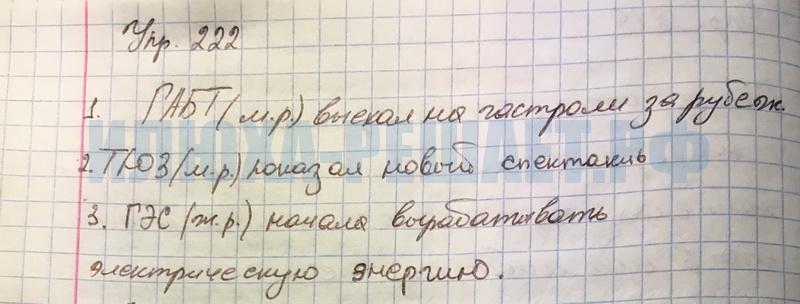 Упр. 222
1. ГАБТ (м.р.) выехал на гастроли за рубеж.
2. ТЮЗ (м.р.) показал новый спектакль
3. ГЭС (ж.р.) начала вырабатывать
электрическую энергию.
ИЛЮХА-РЕШАЕТ.РФ